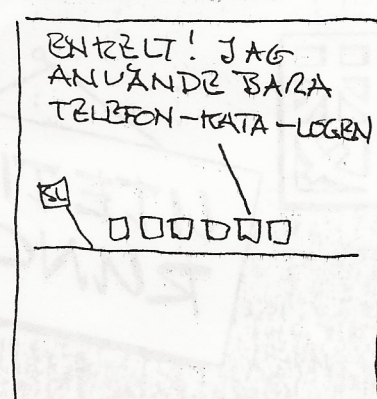 ENKELT! JAG
ANVÄNDE BARA
TELEFON-KATA-LOGEN
SL